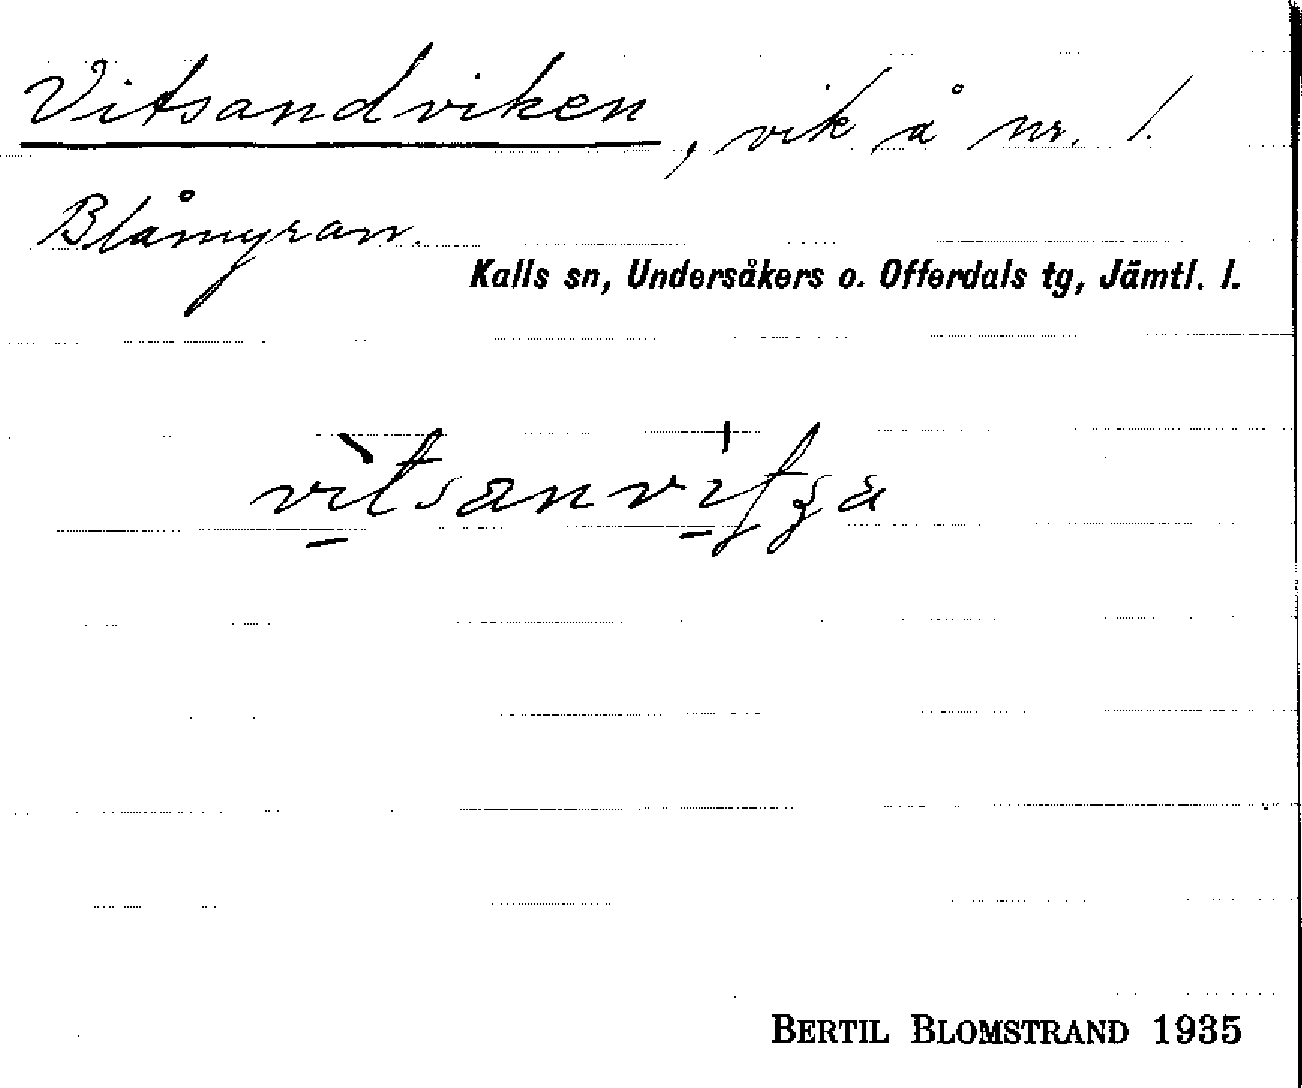 Vitsandviken, vik å nr. 1.
Blåmyran.
Kalls sn, Undersåkers o. Offerdals tg, Jämtl. l.
BERTIL BLOMSTRAND 1935